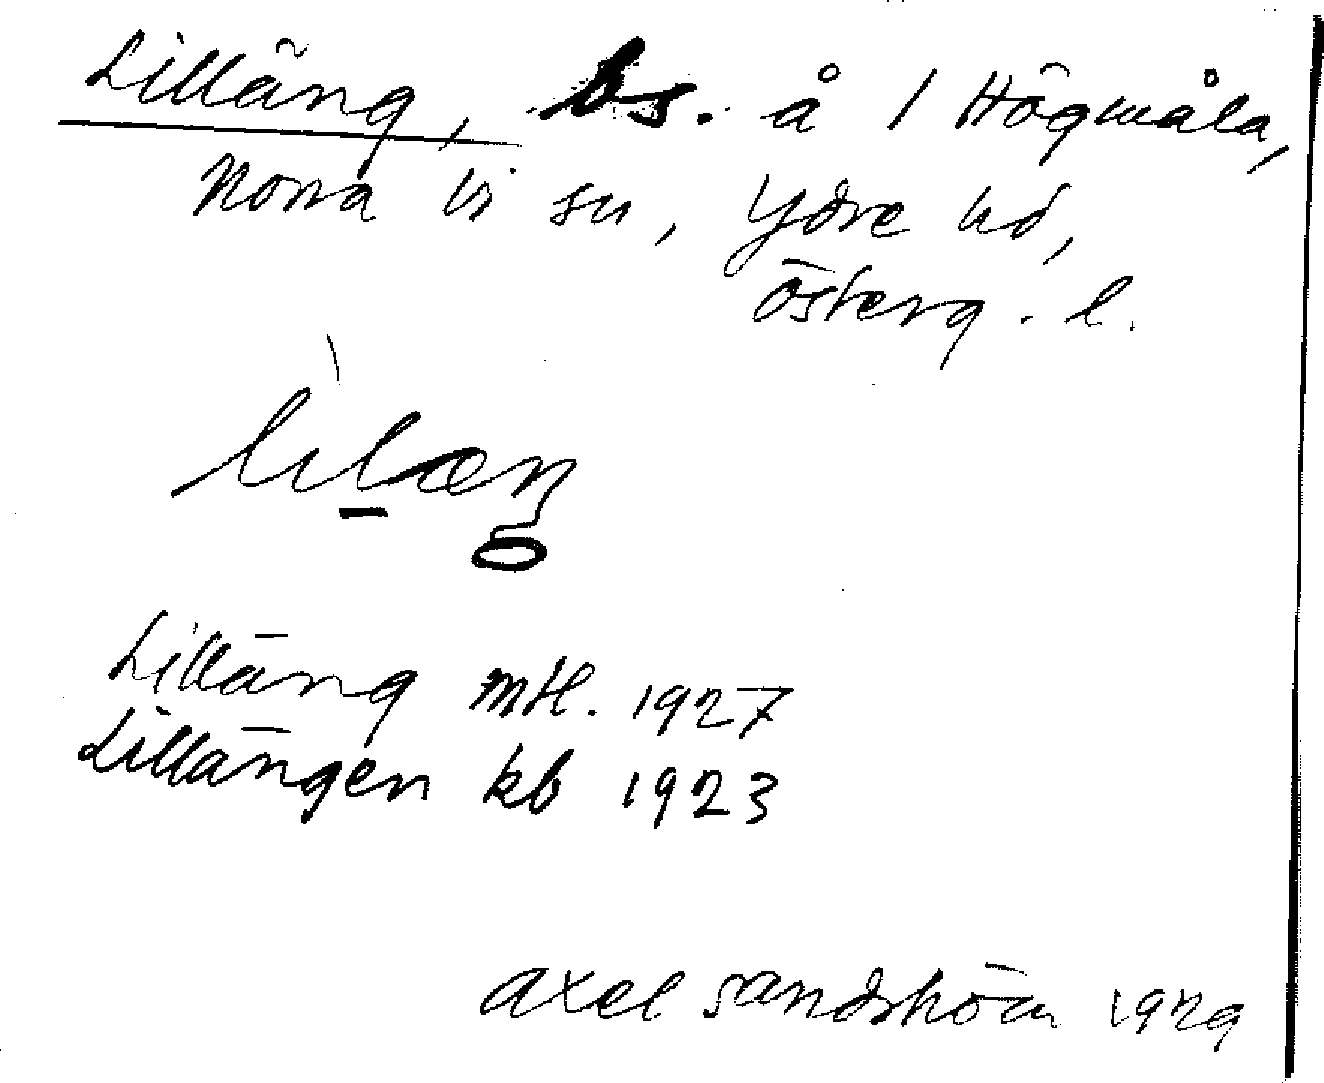 Lilläng, bs. å 1 Högmåla,
Norra Vi sn, Ydre hd,
Österg. l.
lilæŋ
Lilläng mtl. 1927
Lillängen kb 1923
Axel Sandström 1929